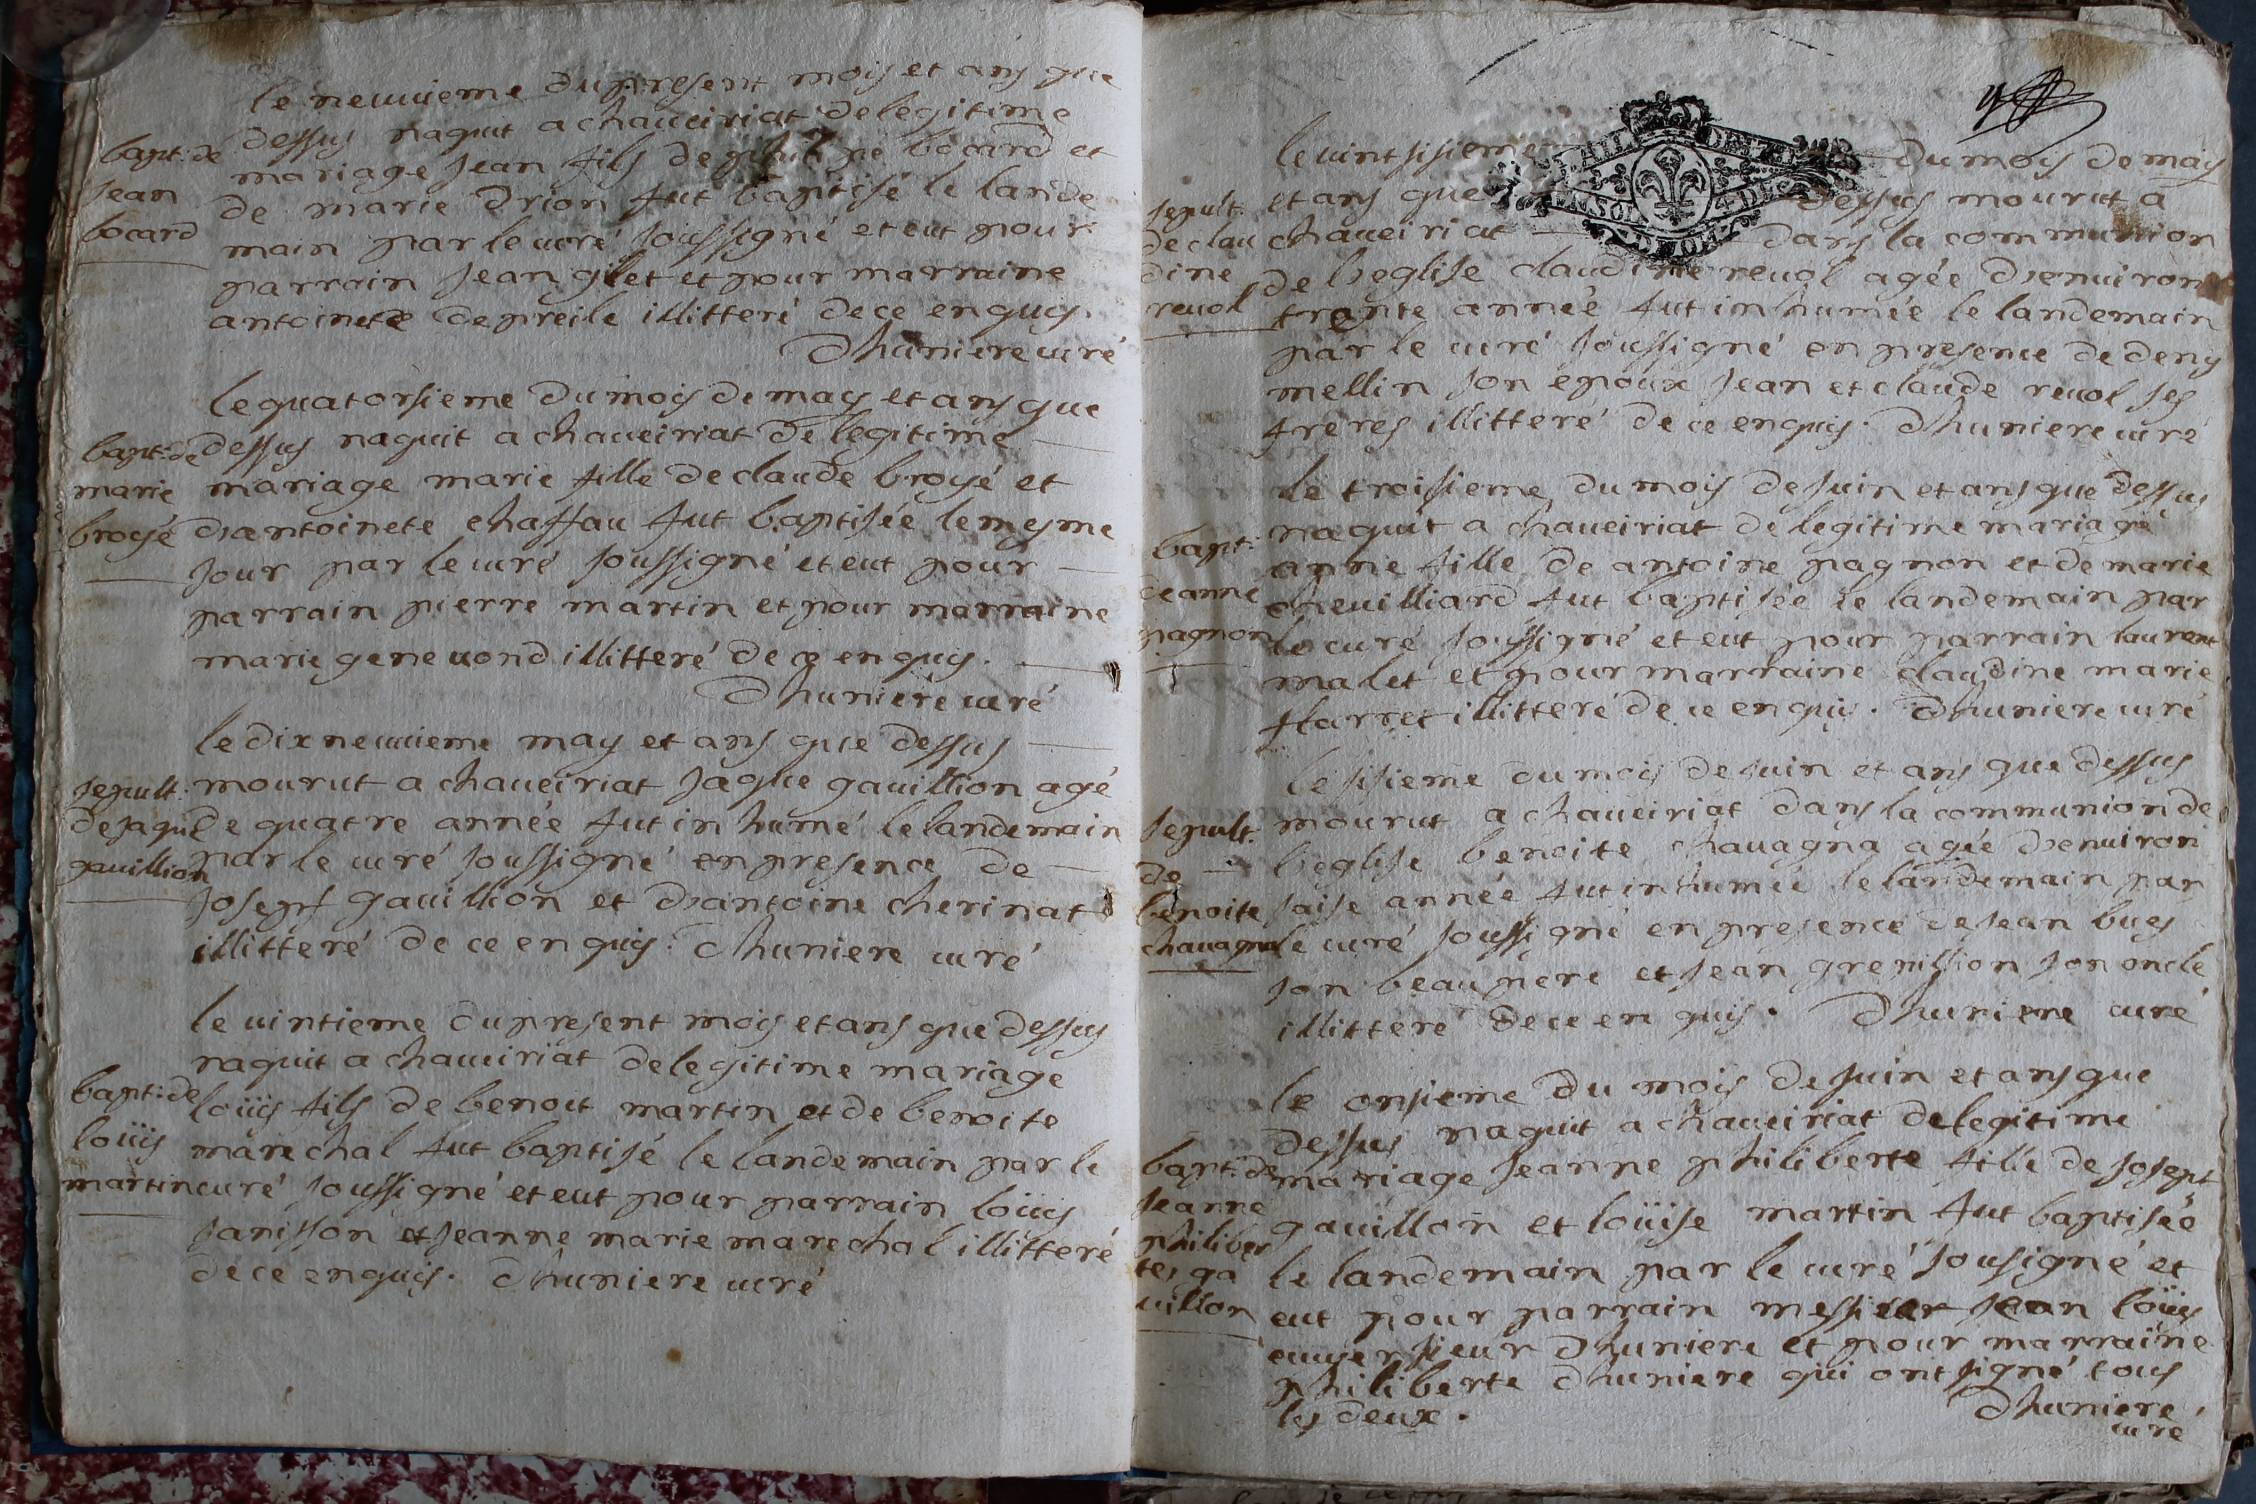 le neuuieme du present mois et ans que
dessus naquit a chaueiriat de legitime
bapt: de
jean
bocard
mariage jean fils de bocard et
de marie drion fut baptisé le lande
main par le curé soussigné et eut pour
parrain jean gilet et pour marraine
antoinete depreile illitteré de ce enquis.
Dhuniere curé
le quatorsieme du mois de may et ans que
bapt: de
marie
broyé
dessus naquit a chaueiriat de legitime
mariage marie fille de claude broyé et
d'antoinete chaffau fut baptisée le mesme
jour par le curé soussigné et eut pour
parrain pierre martin et pour marraine
marie geneuond illitteré de ce enquis.
Dhuniere curé
le dix neuuieme may et ans que dessus
sepult:
de jaque
gauillion
mourut a chaueiriat jaque gauillion agé
de quatre année fut inhumé le landemain
par le curé soussigné en presence de
josept gauillion et d'antoine cherinat
illitteré de ce enquis. Dhuniere curé
le uintieme du present mois et ans que dessus
naquit a chaueiriat de legitime mariage
bapt: de
loüis
martin
loüis fils de benoit martin et de benoite
marechal fut baptisé le landemain par le
curé soussigné et eut pour parrain loüis
janisson et jeanne marie marechal illitteré
de ce enquis. Dhuniere curé
le uintsisieme du mois de may
sepult.
de clau
dine
reuol
et ans que dessus mourut a
chaueiriat dans la communion
de l'eglise claudine reuol agée d'enuiron
trente année fut inhumée le landemain
par le curé soussigné en presence de deny
mellin son époux jean et claude reuol ses
freres illitteré de ce enquis. Dhuniere curé
le troisieme du mois de juin et ans que dessus
bapt:
de anne
pagnon
naquit a chaueiriat de legitime mariage
anne fille de antoine pagnon et de marie
cheuilliard fut baptisée le landemain par
le curé soussigné et eut pour parrain laurent
malet et pour marraine claudine marie
flarret illitteré de ce enquis. Dhuniere curé
le sisieme du mois de juin et ans que dessus
sepult.
de
benoite
chauagna
mourut a chaueiriat dans la communion de
l'eglise benoite chauagna agée d'enuiron
saise année fut inhumée le landemain par
le curé soussigné en presence de jean buey
son beau pere et jean grenillion son oncle
illitteré de ce enquis. Dhuniere curé
le onsieme du mois de juin et ans que
dessus naquit a chaueiriat de legitime
bapt: de
jeanne
philiber
te, ga
uillon
mariage jeanne philiberte fille de josept
gauillon et loüise martin fut baptisée
le landemain par le curé sousigné et
eut pour parrain messieur jean loüis
sieur dhuniere et pour marraine
philiberte dhuniere qui ont signé tous
les deux.
Dhuniere
curé